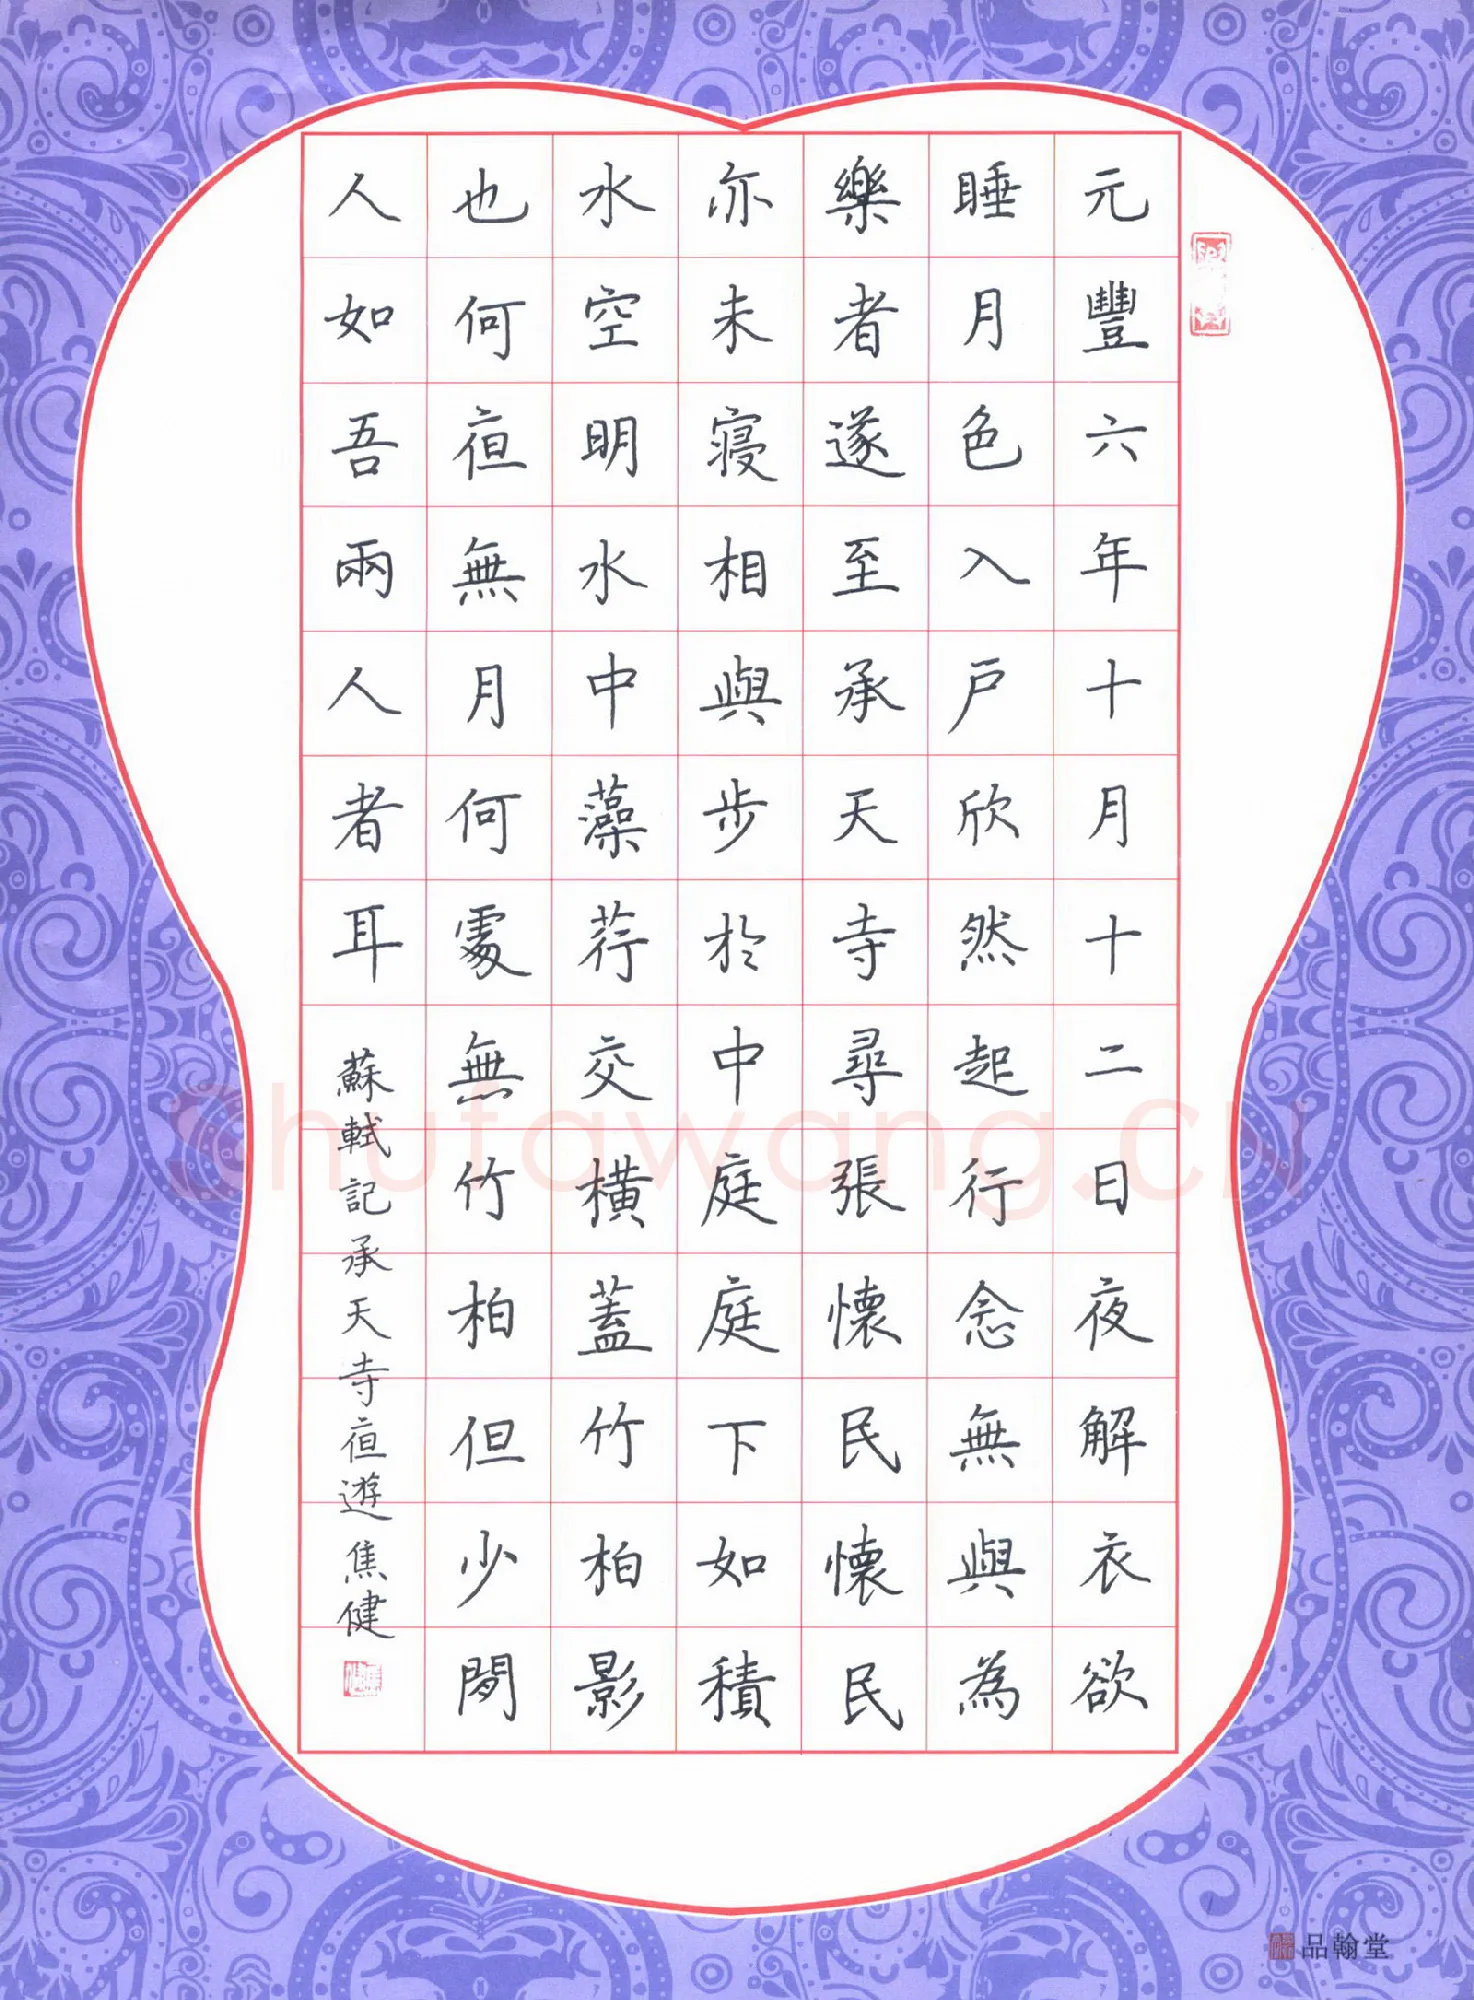 元豐六年十月十二日夜解衣欲
睡月色入戶欣然起行念無與為
樂者遂至承天寺尋張懷民懷民
亦未寢相與步於中庭庭下如積
水空明水中藻荇交橫蓋竹柏影
也何夜無月何處無竹柏但少閒
人如吾兩人者耳
蘇軾記承天寺夜遊焦健
品翰堂
Shufawang.CN